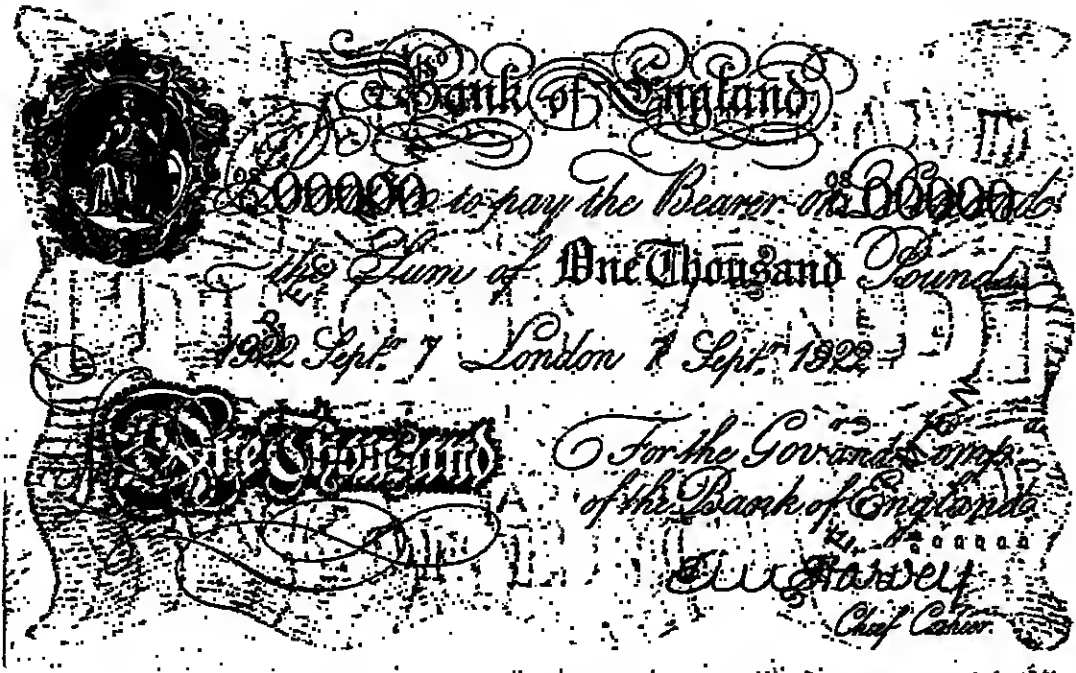 Bank of England
00000 to pay the Bearer on 00000
the Sum of One Thousand Pounds
1922 Sept. 7 London 7 Sept. 1922
One Thousand
For the Gov. and Comp.
of the Bank of England
Chief Cashier.